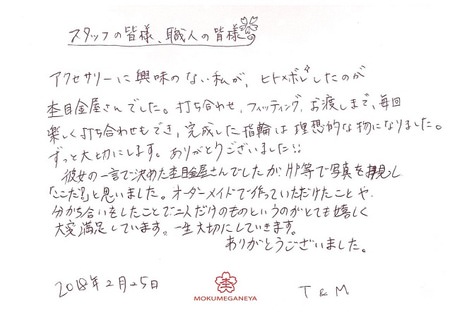 スタッフの皆様、職人の皆様
アクセサリーに興味のない私が、ヒトメボレしたのが
杢目金屋さんでした。打ち合わせ、フィッティング、お渡しまで、毎回
楽しく打ち合わせもでき、完成した指輪は理想的な物になりました。
ずっと大切にします。ありがとうございました!!
彼女の一言で決めた杢目金屋さんでしたがHP等で写真を拝見し
「ここだ!」と思いました。オーダーメイドで作っていただけたことや、
分かち合いをしたことで二人だけのものというのがとても嬉しく
大変満足しています。一生大切にしていきます。
ありがとうございました。
2018年2月25日
MOKUMEGANEYA
T & M